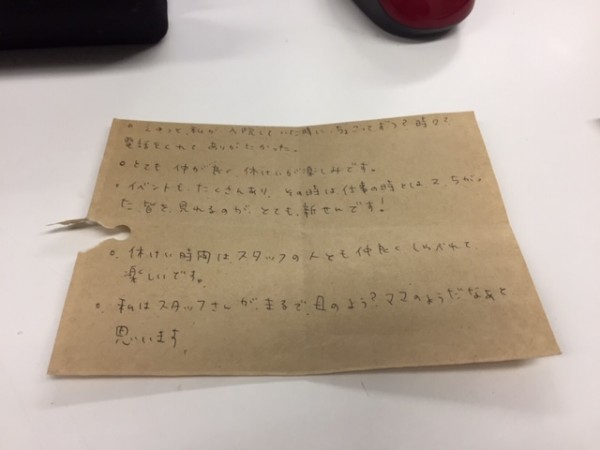 。 私が入院していた時に、ちょこっと 時々で
電話をくれて ありがたかった。
。とても 仲が良く 休けいが楽しみです。
。イベントも たくさんあり、その時は 仕事の時とは ちがっ
た 皆を 見れるのが、とても、新せんです!
。休けい時間は スタッフの人とも 仲良く しゃべれて
楽しいです。
。私は スタッフさんが、まるで、母のよう? ママのようだなあと
思います。